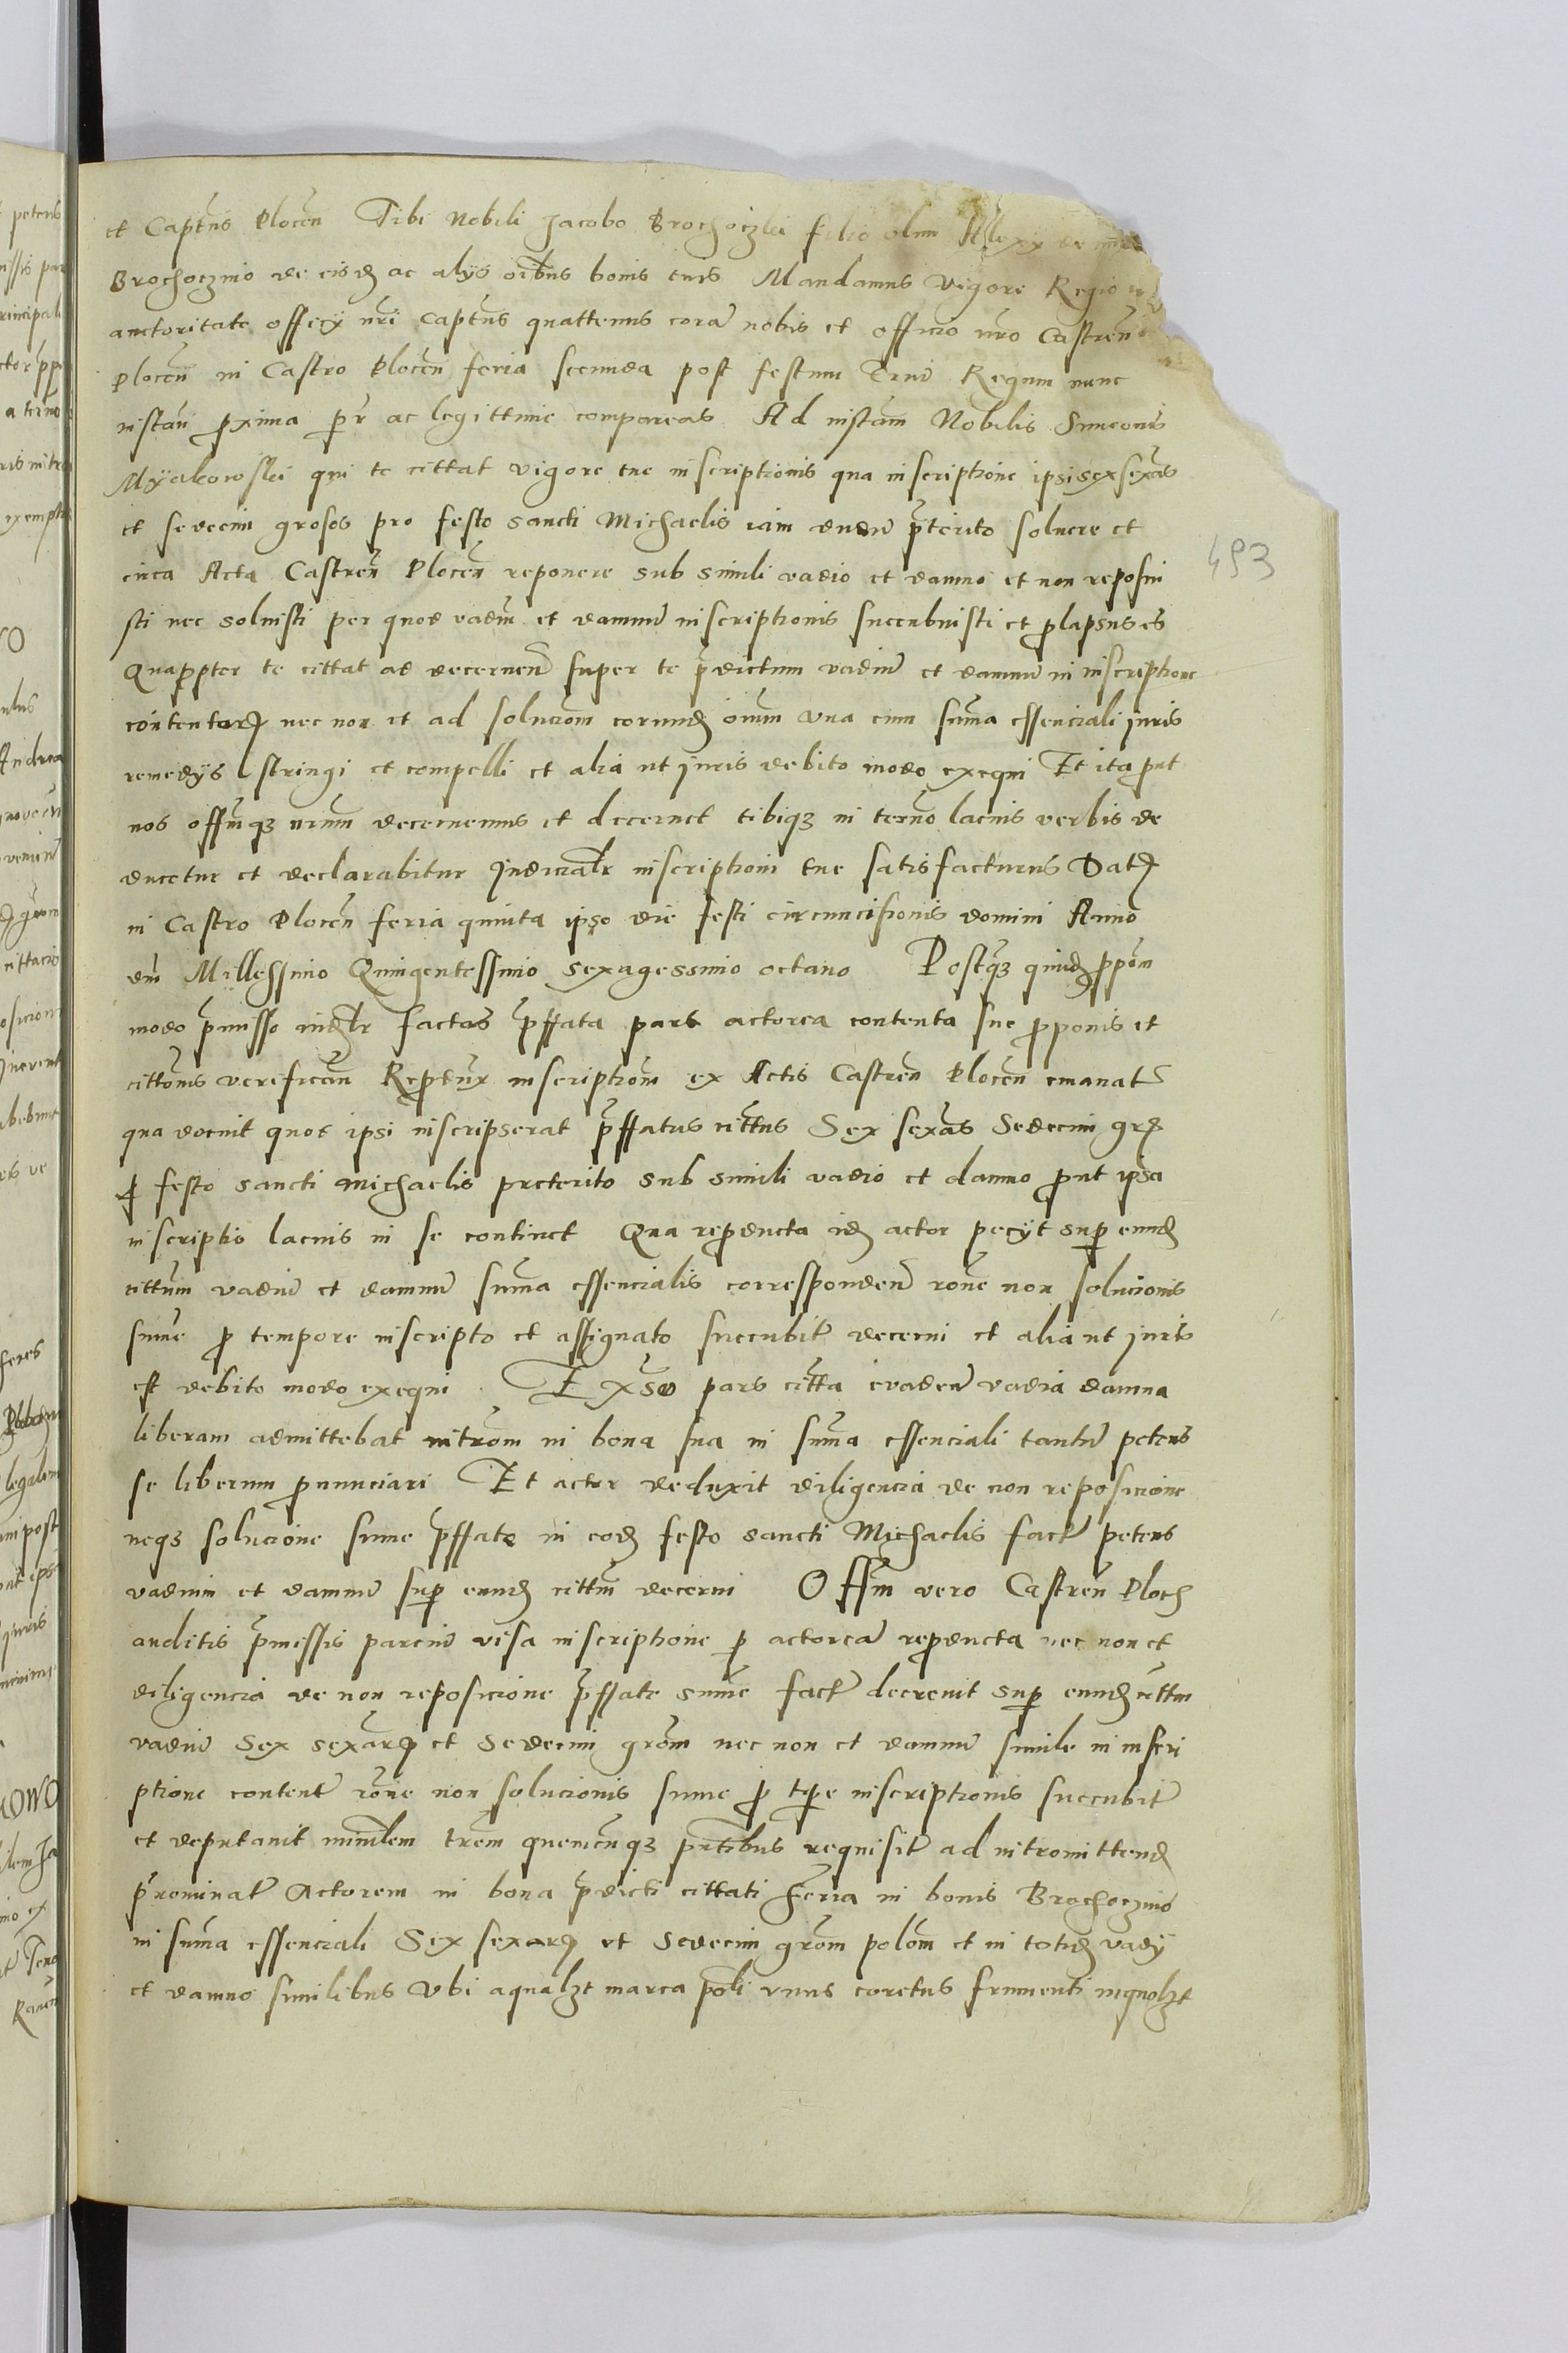 et Captens Plocen Tibi Nobili Jacobo Brochoczki filio olim Alexy de
Brochoczino de eisd ac alys oibus bonis tuis Mandamus vigore Regio
auctoritate officy nri Captens quattenus cora nobis et officio nro Castren
Plocen in Castro Plocen feria secunda post festum Trium Regum nunc
instan proxima pr ac legittime compareas Ad instam Nobilis Simeonis
Myakowski qui te cittat vigore tue inscriptionis qua inscriptione ipsi sex sexas
et sedecim grosos pro festo sancti Michaelis iam dudu preterito solvere et
circa Acta Castren Plocen reponere sub simili vadio et damno et non reposui
sti nec solvisti per quod vadiu et damnu inscriptionis succubuisti et prolapsus es
Quappter te cittat ad decernen super te predictum vadiu et damnu in inscriptione
contentor nec non et ad soluciom eorund oium una cum suma essenciali juris
remedys astringi et compelli et alia ut juris debito modo exequi Et ita prout
nos offmqz nrum decernemus et decernet tibiqz in termo lacius verbis de
ducetur et declarabitur Judicialr inscriptioni tue satisfacturus Dat
in Castro Plocen feria quinta ipso die festi circumcisionis domini Anno
dni Millessimo Quingentessimo sexagessimo octavo Postqz quid ppom
modo premisso judlr factas preffata pars actorea contenta sue proponis et
cittonis verifican Reprodux inscriptiom ex Actis Castren Plocen emanat
qua docuit quot ipsi inscripserat preffatus cittus Sex sexas Sedecim gr
pro festo sancti Michaelis preterito sub simili vadio et damno prout ipsa
inscriptis lacius in se continet Qua reproducta id actor pecyt sup eund
cittum vadiu et damnu suma essencialis corresponden rone non solucionis
sume pro tempore inscripto et assignato succubit decerni et alia ut juris
est debito modo exequi Ex adso pars citta evaden vadia damna
liberam admittebat introm in bona sua in suma essenciali tantu petens
se liberum pronunciari Et actor deduxit diligencia de non reposicione
neqz solucione sume preffate in eod festo sancti Michaelis fact petens
vadium et damnu sup eund cittm decerni Offm vero Castren Ploch
auditis premissis parciu visa inscriptione p actorea reproducta nec non et
diligencia de non reposicione preffate sume fact decrevit sup eund cittm
vadiu Sex sexar et Sedecim grom nec non et damnu simile in inscri
ptione content rone non solucionis sume pro tpe inscriptionis succubit
et deputavit minlem trem quemcuqz prtibus requisit ad intromittend
prenominat Actorem in bona predicti cittati feria in bonis Brochoczino
in suma essenciali Sex sexar et Sedecim grom polom et in totid vady
et damno similibus Ubi aqualzt marca poli unus coretus frumenti inquolzt
493